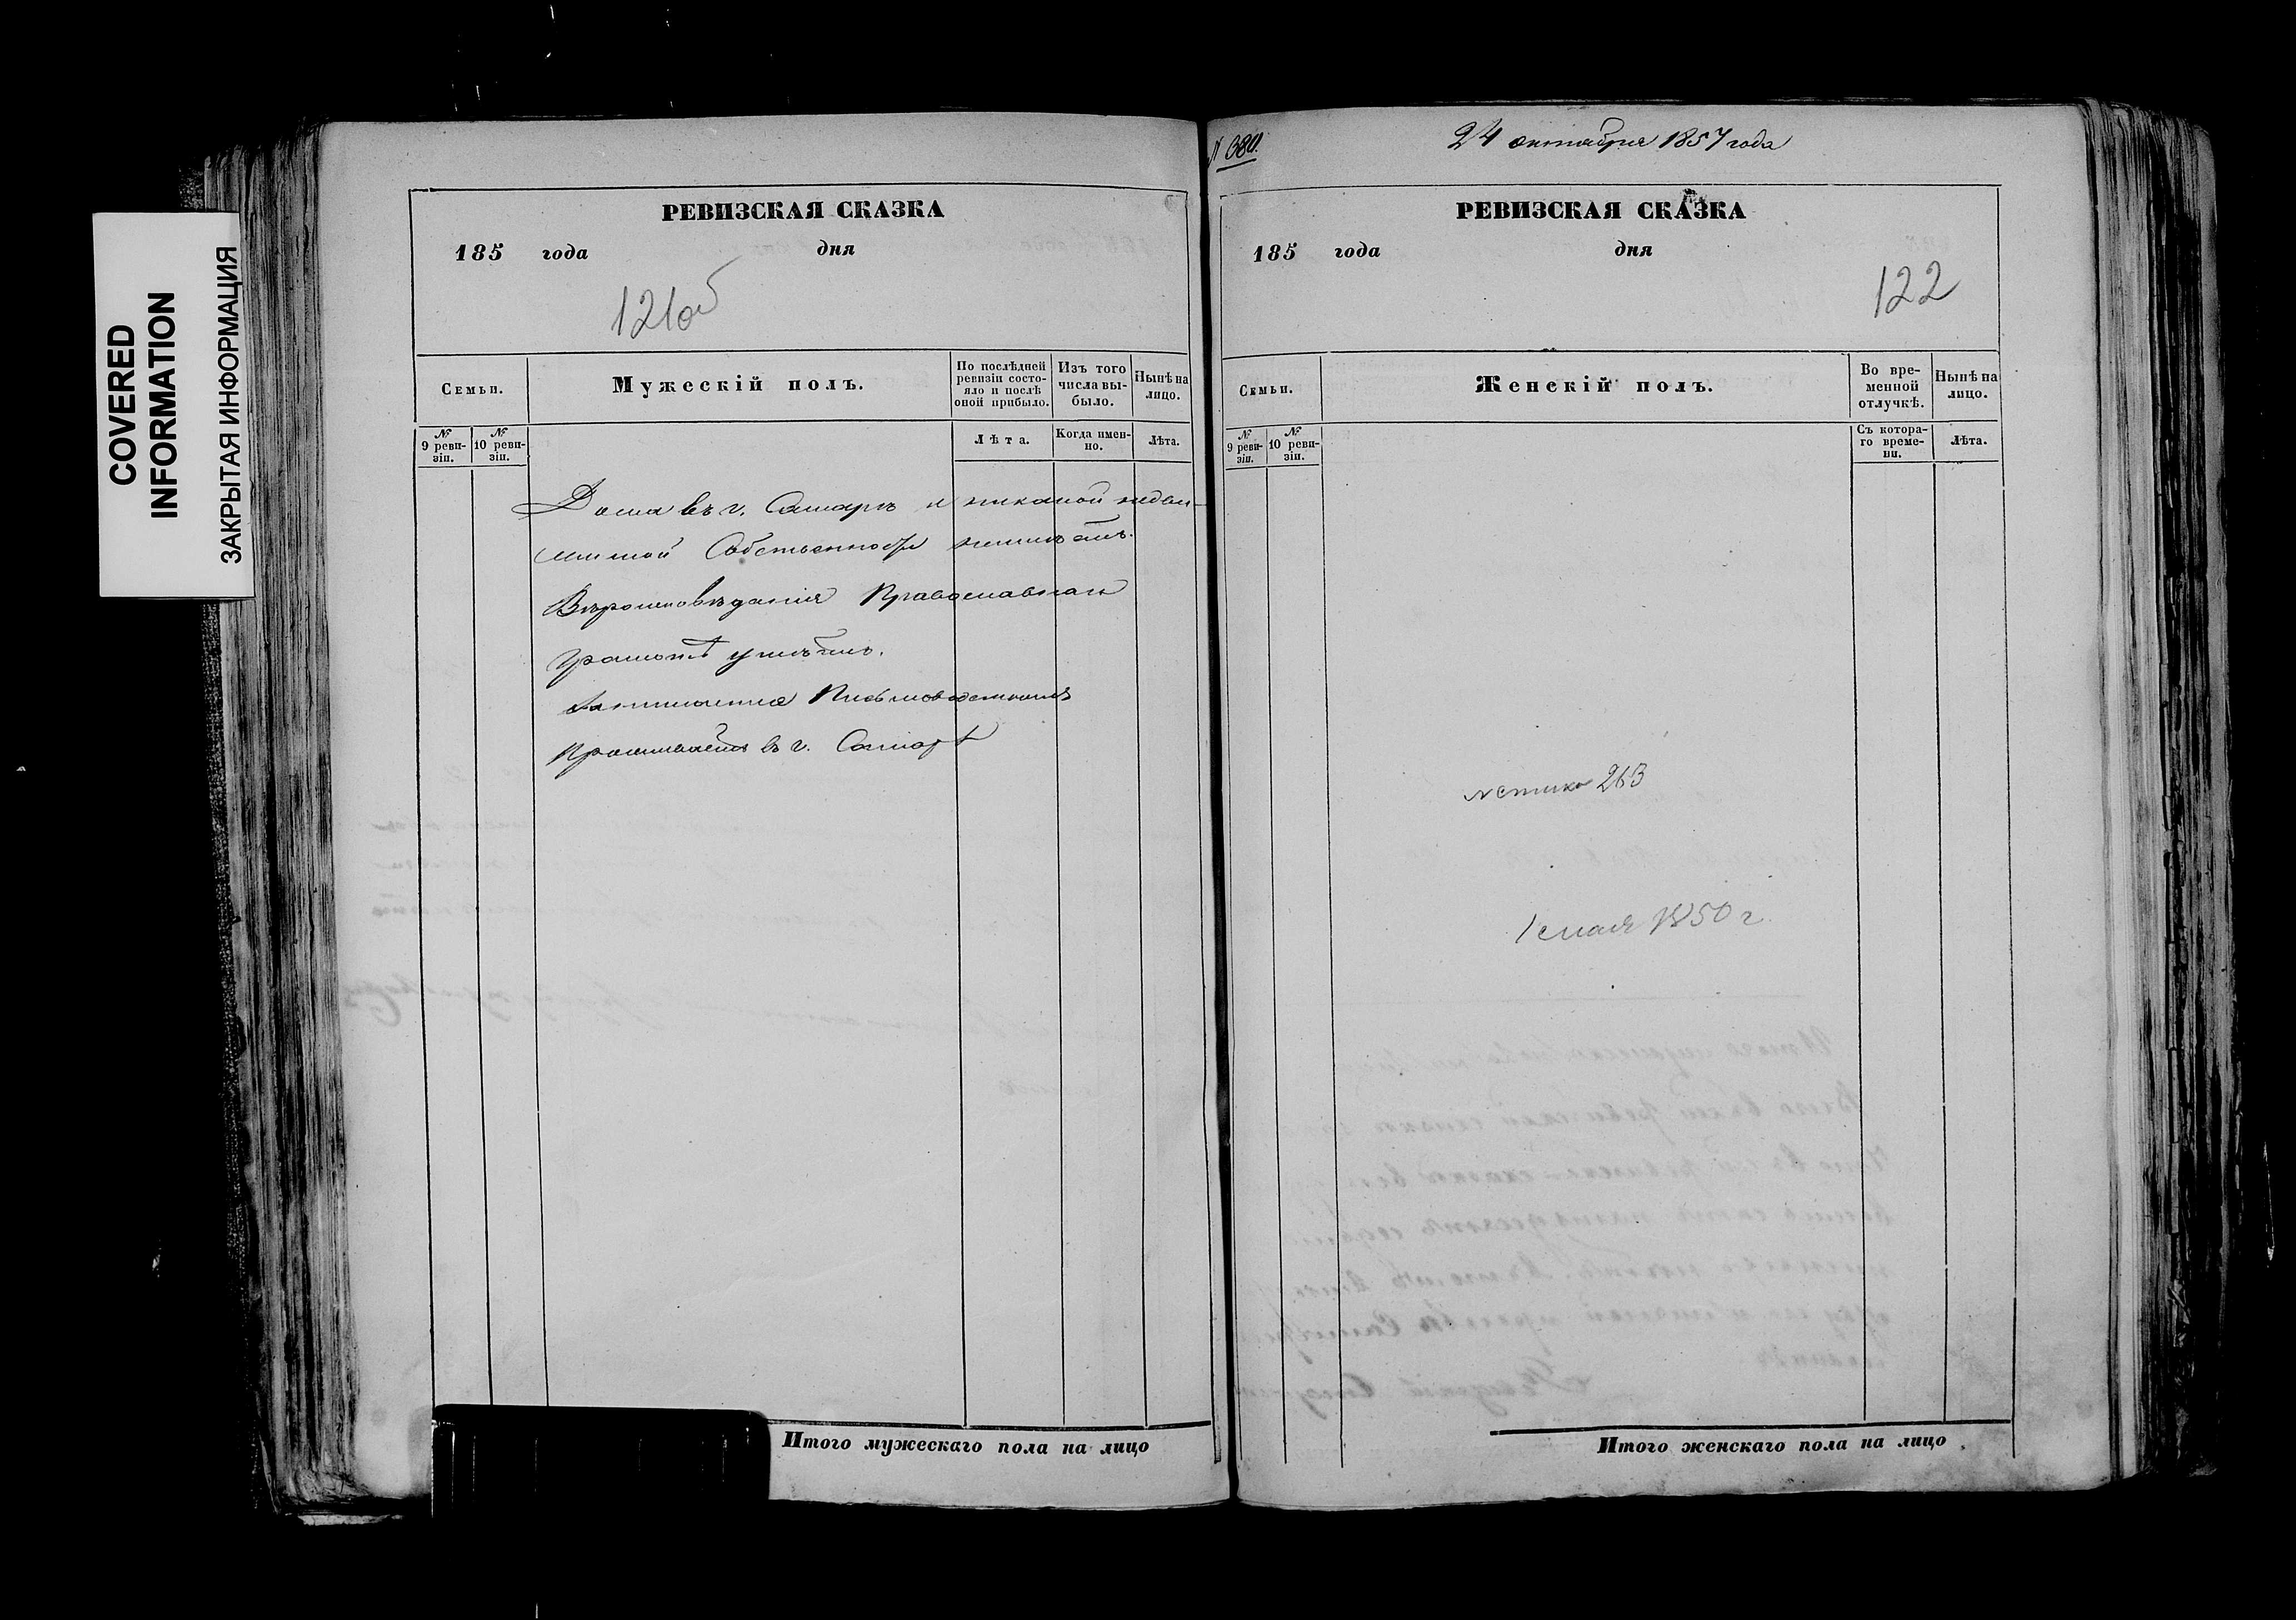 COVERED
INFORMATION
ЗАКРЫТАЯ ИНФОРМАЦИЯ
РЕВИЗСКАЯ СКАЗКА
185 года дня
121об
Семьи.
Мужескій полъ.
По послѣдней ревизіи состо-
яло и послѣ
оной прибыло.
Изъ того
числа вы-
было.
Нынѣ на
лицо.
№
9 реви-
зіи.
№
10 реви-
зіи.
Лѣта.
Когда имен-
но.
Лѣта.
Дома въ г. Самарѣ и никакой недви-
жимой Собственности неимѣетъ.
Вѣроисповѣданія Православнаго
Грамотѣ умѣетъ.
Занимается Письмоводствомъ
Проживаетъ въ г. Самарѣ
Итого мужескаго пола на лицо
№ 380.
24 октября 1857 года
РЕВИЗСКАЯ СКАЗКА
185 года дня
122
Семьи.
Женскій полъ.
Во вре-
менной
отлучкѣ.
Нынѣ на
лицо.
№
9 реви-
зіи.
№
10 реви-
зіи.
Съ котора-
го време-
ни.
Лѣта.
263
1 мая 1850 г.
Итого женскаго пола на лицо